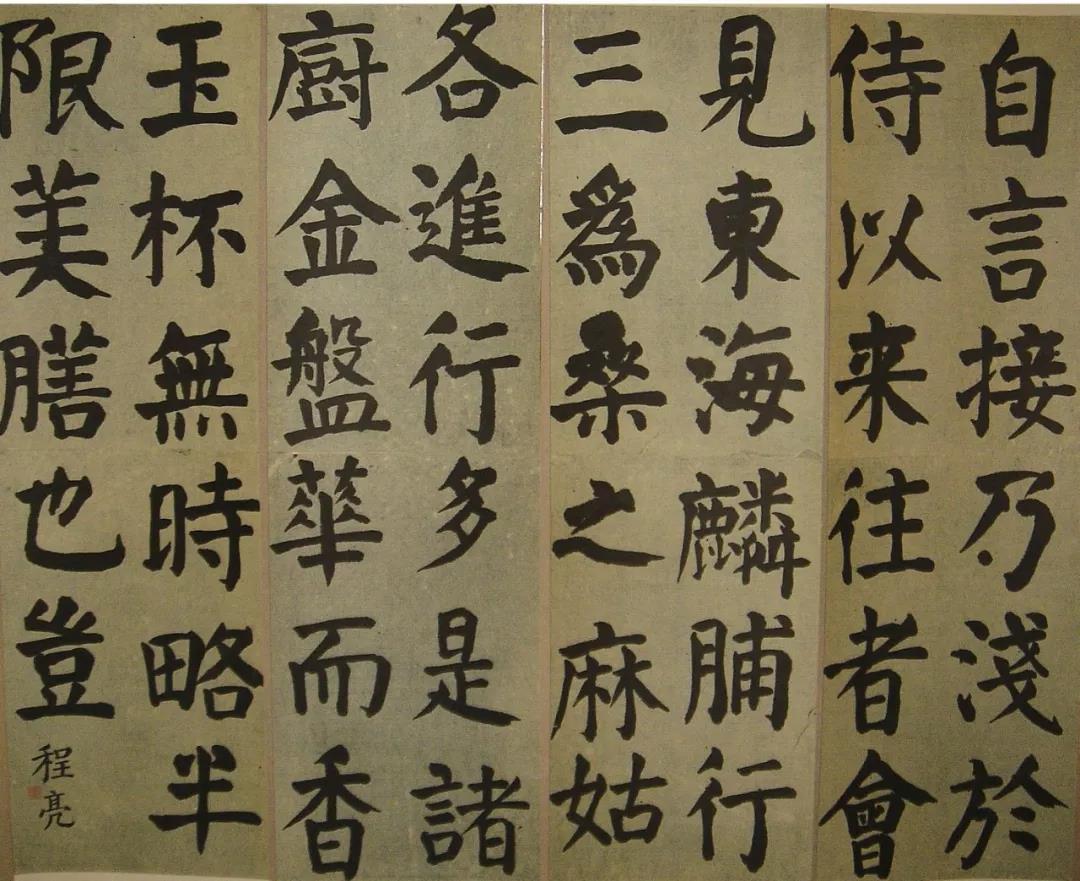 自言接乃淺於
侍以来往者會
見東海麟脯行
三為桑之麻姑
各進行多是諸
廚金盤華而香
玉杯無時略半
限美膳也豈
程亮